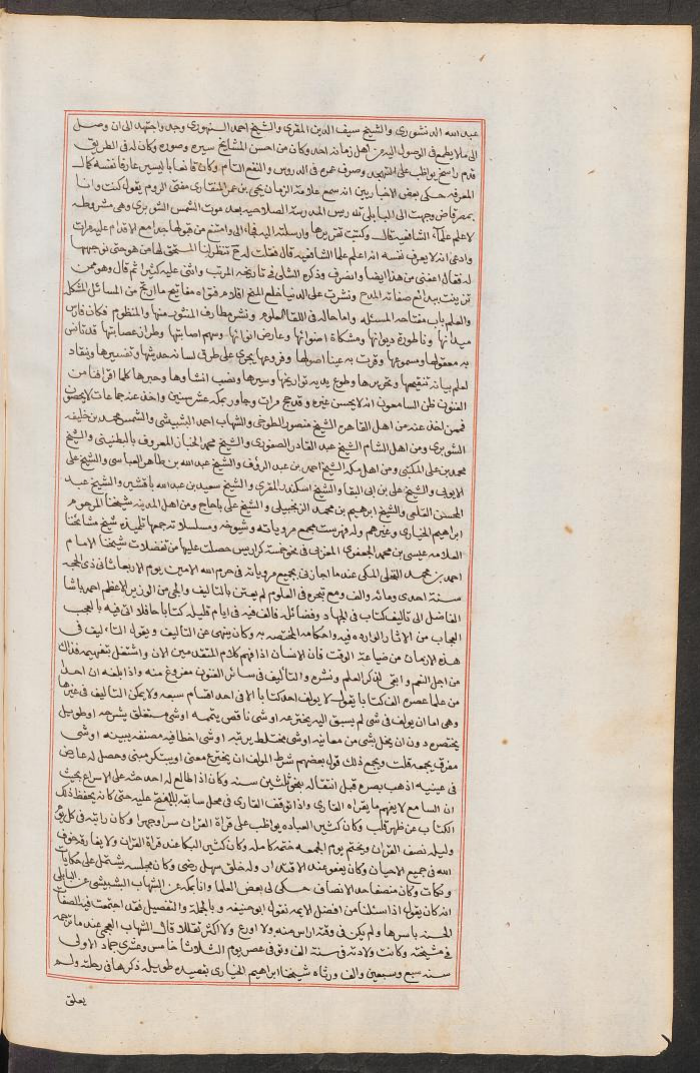 عبد الله الدنشوري والشيخ سيف الدين المقري والشيخ احمد السنهوري وجد واجتهد الى ان وصل
الى ما لا يطمع في الوصول اليه من اهل زمانه احد وكان من احسن المشايخ سيرة وصورة وكان له في الطريق
قدم راسخ يواظب على التهجد وصرف عمره في الدروس والنفع التام وكان قانعا باليسير عارفا نفسه كمال
المعرفه حكى بعض الاخباريين انه سمع علامة الزمان يحيى بن عمر المنقاري مفتي الروم يقول كنت وانا
بمصر قاض وجهت الى البابلي تدريس المدرسة الصلاحيه بعد موت الشمس الشوبري وهي مشروطه
لاعلم علماء الشافعيه قال وكتبت تقريرها وارسلته اليه فجاء الي وامتنع من قبولها جدا مع الاقدام عليه مرات
وادعى انه لا يعرف نفسه انه اعلم علما الشافعيه قال فقلت له ح تنظر لنا المستحق لها من هو حتى نوجهها
له فقال اعفني من هذا ايضا وانصرف وذكره الشلي في تاريخه المرتب واثنى عليه كثيرا ثم قال وهو ممن
تزينت ببدائع صفاته المدح ونشرت على الدنيا خلع المنح اقلام فتواه مفاتيح ما ارتج من المسائل المشكله
والعلم باب مفتاحه المسئله واما حاله في القاء العلوم ونشره مطارف المنثور منها والمنظوم فكان فارس
ميدانها وناطورة ديوانها ومشكاة اضوائها وعارض انوائها وسهم اصابتها وطراز عصابتها قد تانس
به معقولها ومسموعها وقرت به عينا اصولها وفروعها يجري على طرف لسانه حديثها وتفسيرها وينقاد
لعلم بيانه تنقيحها وتحريرها وطوع يديه تواريخها وسيرها ونصب انشاوها وخبرها كلما اقرا فنا من
الفنون ظن السامعون انه لا يحسن غيره وقد حج مرات وجاور بمكه عشر سنين واخذ عنه جماعات لا يحصون
فممن اخذ عنه من اهل القاهره الشيخ منصور الطوخي والشهاب احمد البشبيشي والشمس محمد بن خليفه
الشوبري ومن اهل الشام الشيخ عبد القادر الصفوري والشيخ محمد الخباز المعروف بالبطنيني والشيخ
محمد بن علي المكتبي ومن اهل مكه الشيخ احمد بن عبد الرؤف والشيخ عبد الله بن طاهر العباسي والشيخ علي
الايوبي والشيخ علي بن ابي البقا والشيخ اسكندر المقري والشيخ سعيد بن عبد الله باقشير والشيخ عبد
المحسن القلعي والشيخ ابراهيم بن محمد الزنجبيلي والشيخ علي باحاج ومن اهل المدينه شيخنا المرحوم
ابراهيم الخياري وغيرهم وله فهرست مجمع مروياته وشيوخه ومسلسلاته جمعها تلميذه شيخ مشائخنا
العلامه عيسى بن محمد الجعفري المغربي في نحو خمسة كراريس حصلت عليها من تفضلات شيخنا الامام
احمد بن محمد النخلي المكي عندما اجازني بجميع مروياته في حرم الله الامين يوم الاربعا ثاني ذي الحجه
سنة احدى ومائه والف ومع تبحره في العلوم لم يعتن بالتاليف والجي من الوزير الاعظم احمد باشا
الفاضل الى تاليف كتاب في الجهاد وفضائله فالف فيه في ايام قليله كتابا حافلا اتى فيه بالعجب
العجاب من الاثار الوارده فيه واحكامه المختصه به وكان ينهى عن التاليف ويقول التاليف في
هذه الازمان من ضياعة الوقت فان الانسان اذا فهم كلام المتقدمين الان واشتغل بتفهيمه فذاك
من اجل النعم وابقى لذكر العلم ونشره والتاليف في سائر الفنون مفروغ منه واذا بلغه ان احدا
من علما عصره الف كتابا يقول لا يولف احد كتابا الا في احد اقسام سبعه ولا يمكن التاليف في غيرها
وهي اما ان يولف في شي لم يسبق اليه يخترعه او شي ناقص يتممه او شي مستغلق يشرحه او طويل
يختصره دون ان يخل بشي من معانيه او شي مختلط يرتبه او شي اخطا فيه مصنفه يبينه او شي
مفرق يجمعه قلت ويجمع ذلك قول بعضهم شرط المولف ان يخترع معنى او يبتكر مبنى وحصل له عارض
في عينيه اذهب بصره قبل انتقاله بنحو ثلثين سنه وكان اذا طالع له احد حثه على الاسراع بحيث
ان السامع لا يفهم ما يقراه القاري واذا توقف القاري في محل سابقه بالفتح عليه حتى كانه يحفظ ذلك
الكتاب عن ظهر قلب وكان كثير العباده يواظب على قراة القران سرا وجهرا وكان راتبه في كل يوم
وليله نصف القران ويختم يوم الجمعه ختمه كامله وكان كثير البكا عند قراة القران ولا يفارقه خوف
الله في جميع الاحيان وكان يعفو عند الاقتدار وله خلق سهل رضي وكان مجلسه يشتمل على حكايات
ونكات وكان منصفا حد الانصاف حكى لي بعض العلما وانا بمكه عن الشهاب البشبيشي عن البابلي
انه كان يقول اذا سئلنا من افضل الايمه نقول ابو حنيفه وبالجملة والتفصيل فقد اجتمعت فيه الصفات
الحسنه باسرها ولم يكن في وقته اراس منه ولا اورع ولا اكثر تقللا قال الشهاب العجمي عند ما ترجمه
في مشيخته وكانت ولادته في سنة الف وتوفي عصر يوم الثلاثا خامس وعشري جماد الاولى
سنه سبع وسبعين والف ورثاه شيخنا ابراهيم الخياري بقصيده طويله ذكرها في رحلته ولم
يعلق